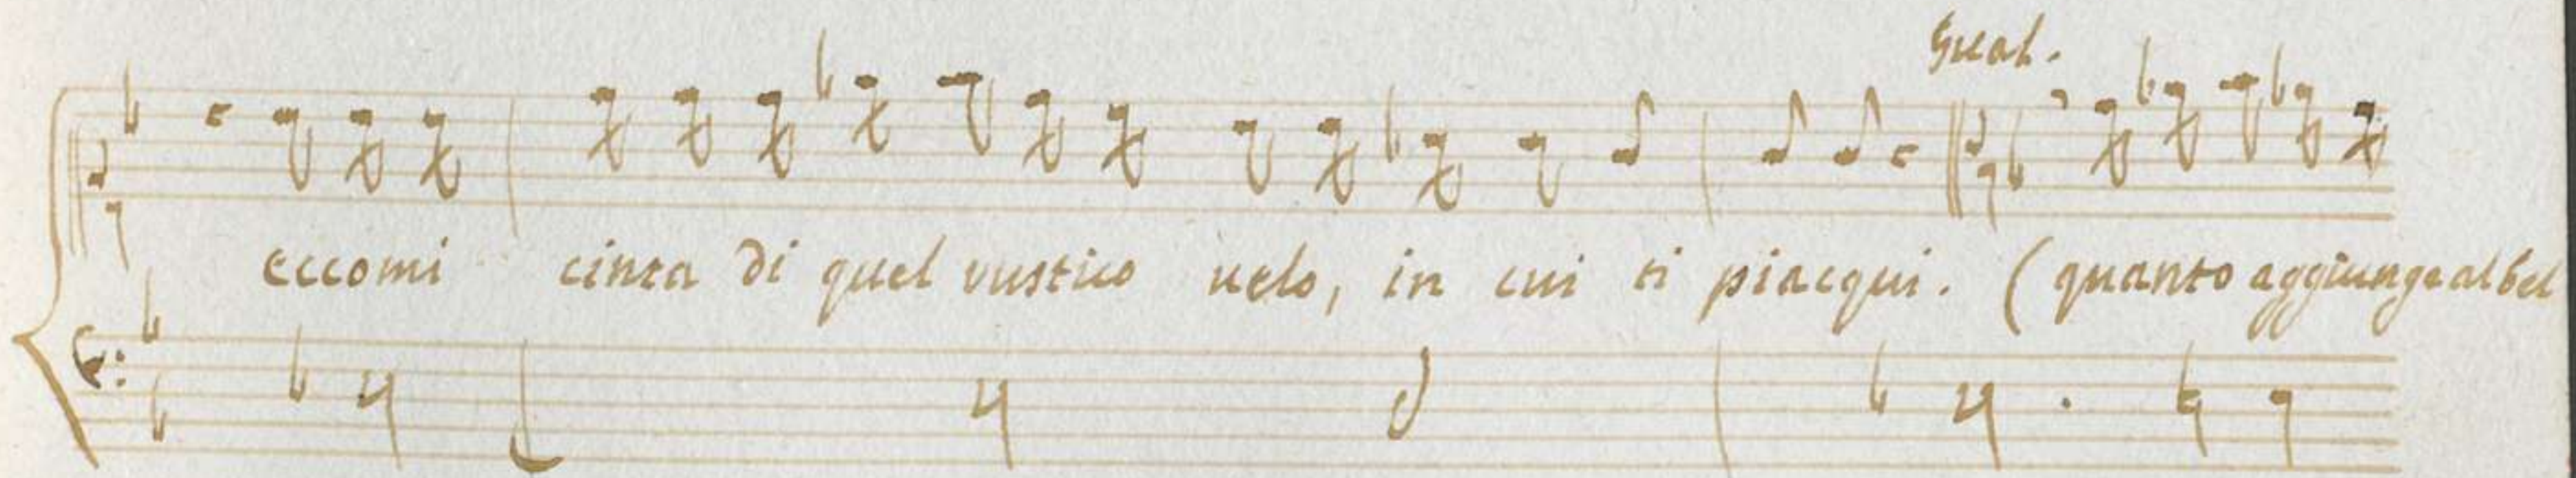 Gual.
eccomi cinta di quel rustico uelo, in cui ti piacqui. (quanto aggiunge al bel